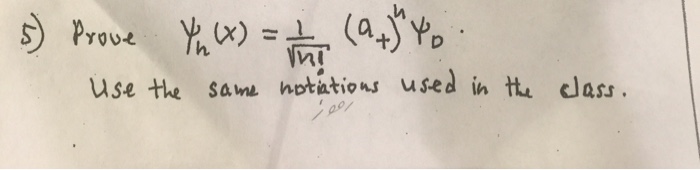 5) Prove ψₙ(x) = 1/√n! (a₊)ⁿ ψ₀.
Use the same notiations used in the class.